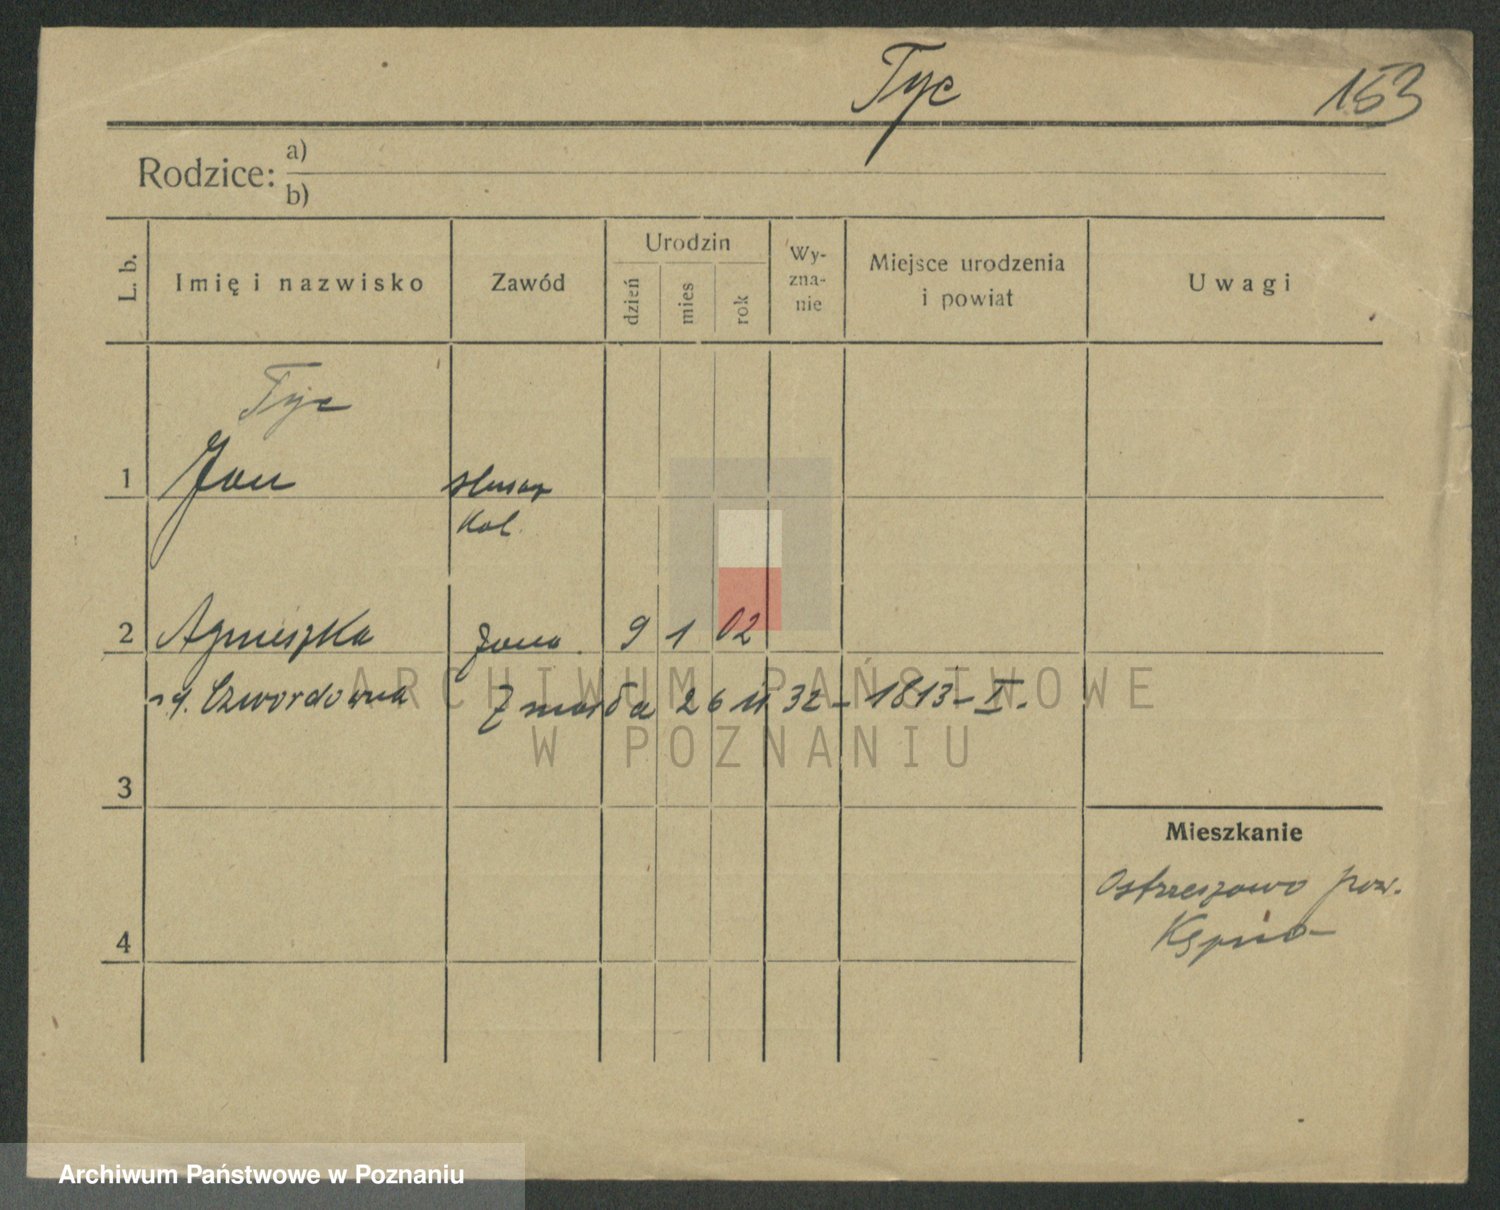 Tyc 153
Rodzice: a)
b)
L. b. Imię i nazwisko Zawód Urodzin dzień mies rok Wy-zna-nie Miejsce urodzenia i powiat Uwagi
Tyc
1 Jan ślusarz
kol.
2 Agnieszka żona 9 1 02
Czwordówna Zmarła 26 11 32 - 1813 - I.
3
Mieszkanie
Ostrzeszowo pow.
Kępno
4
ARCHIWUM PAŃSTWOWE
W POZNANIU
Archiwum Państwowe w Poznaniu